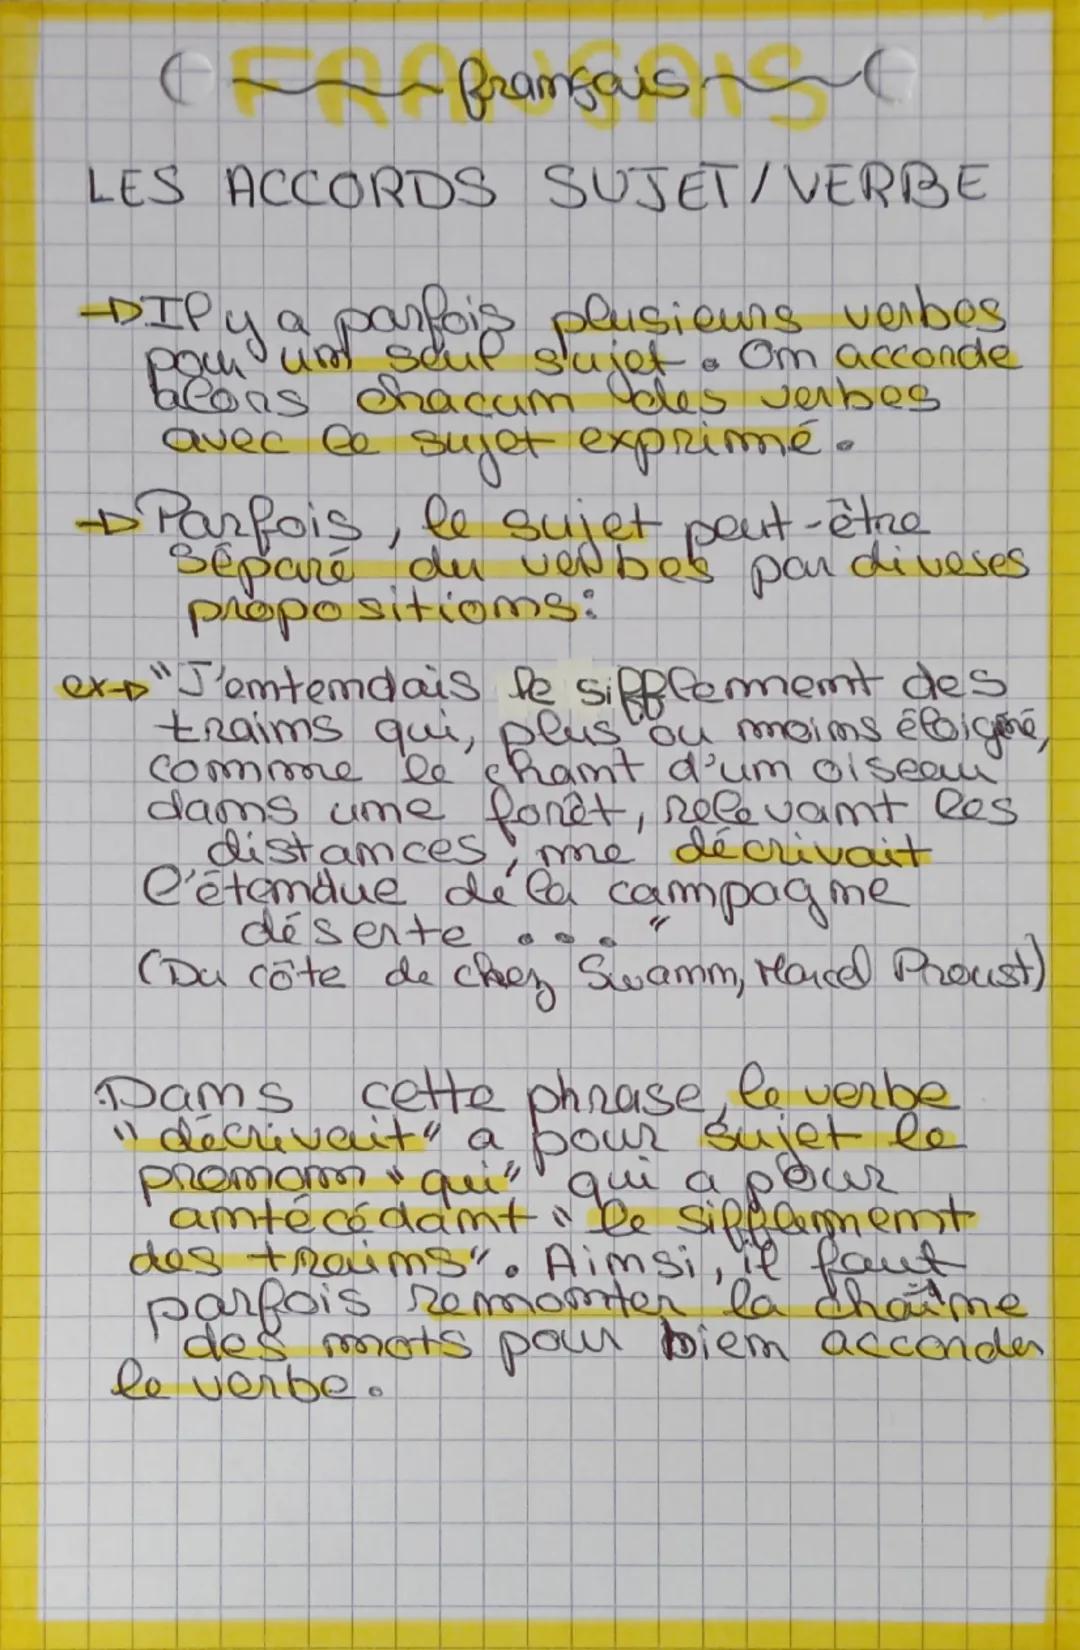 FRANÇAIS
français
LES ACCORDS SUJET/VERBE
→ Il y a parfois plusieurs verbes
pour un seul sujet. On accorde
alors chacun des verbes
avec le sujet exprimé.
→ Parfois, le sujet peut-être
séparé du verbes par diveses
propositions:
ex→ "J'entendais le sifflement des
trains qui, plus ou moins éloigné,
comme le chant d'un oiseau
dans une forêt, relevant les
distances, me décrivait
l'étendue de la campagne
déserte ..."
(Du côte de chez Swann, Marcel Proust)
Dans cette phrase, le verbe
"décrivait" a pour sujet le
pronom "qui" qui a pour
antécédant "le sifflement
des trains". Ainsi, il faut
parfois remonter la chaîne
des mots pour bien accorder
le verbe.